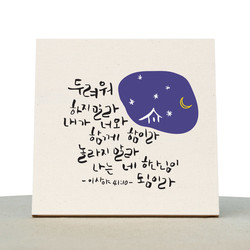 두려워
하지 말라
내가 너와
함께 함이라
놀라지 말라
나는 네 하나님이
됨이라
- 이사야 41:10 -